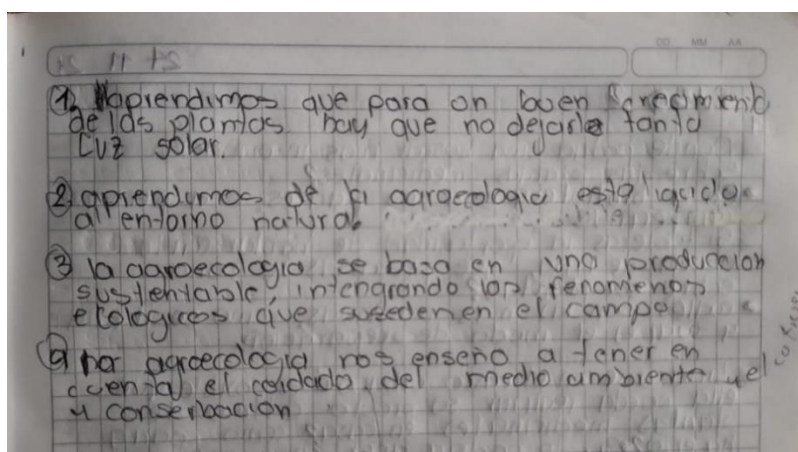 DD MM AA
① aprendimos que para on buen crecimiento
de las plantas hay que no dejarle tanta
Luz solar.
② aprendimos de la agroecologia esta liguida
al entorno natural
③ la agroecologia se basa en una produccion
sustentable, intengrando los fenomenos
ecologicos que suseden en el campo
④ la agroecologia nos enseño a tener en
cuenta el coidado del medio ambiente y el
y conserbacion